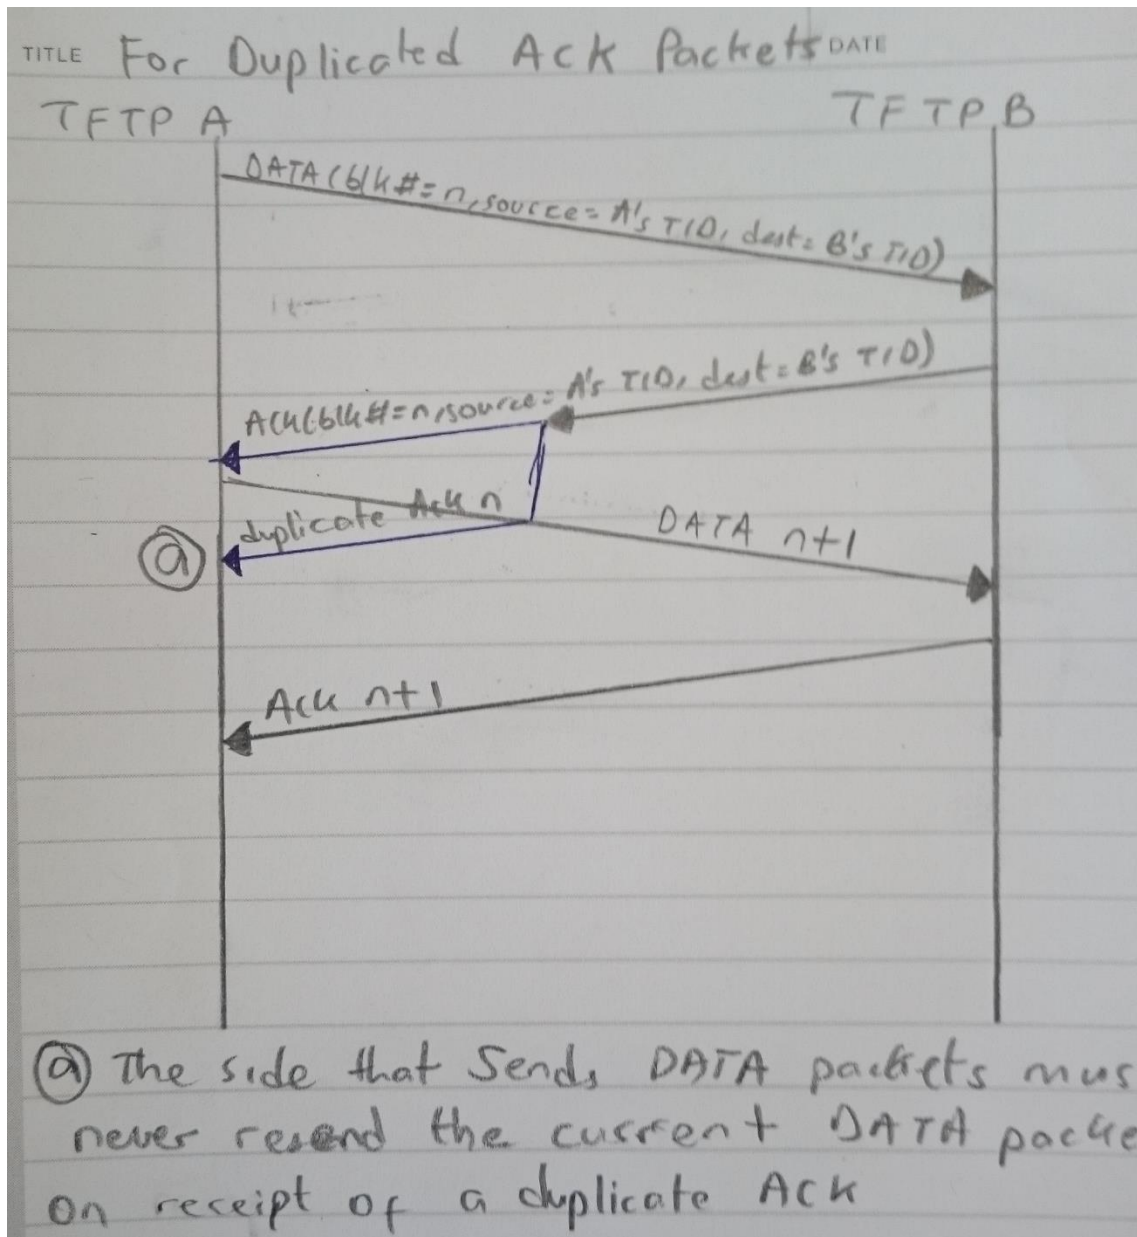 TITLE For Duplicated Ack Packets DATE
TFTP A TFTP B
DATA (blk#=n, source= A's TID, dest= B's TID)
Ack (blk#=n, source= A's TID, dest= B's TID)
duplicate Ack n
DATA n+1
a
Ack n+1
a The side that Sends DATA packets mus
never resend the current DATA packe
on receipt of a duplicate Ack